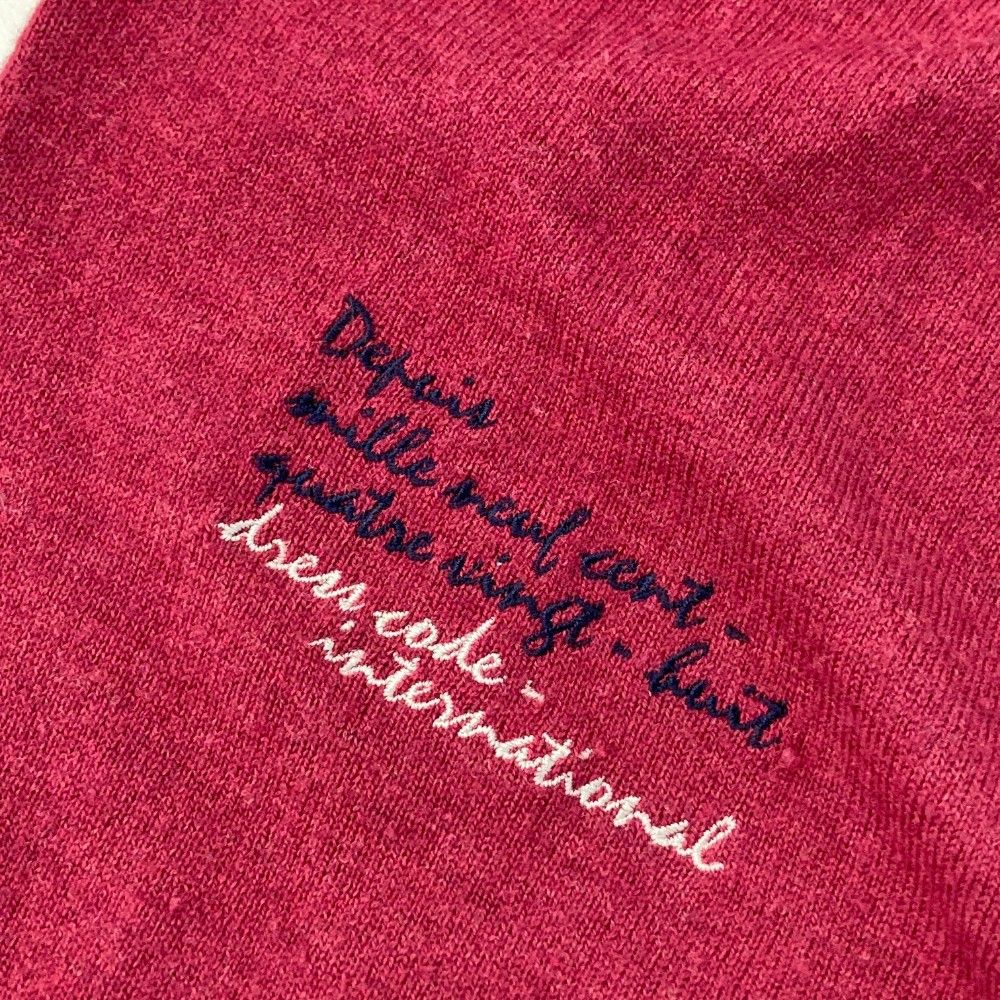 Depuis
mille neuf cent -
quatre vingt - huit
dress code -
international